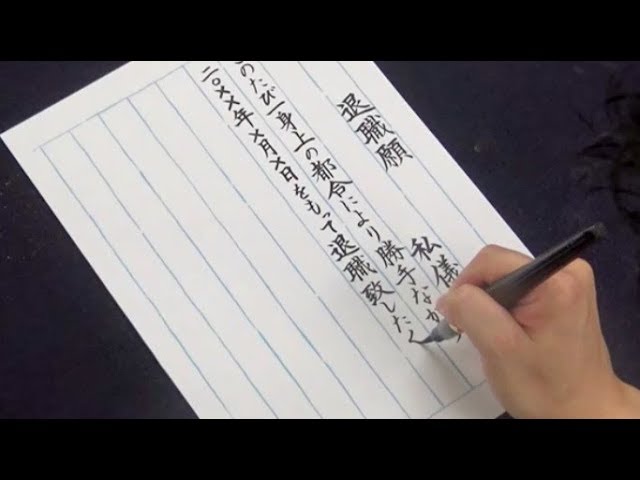 退職願
私儀
のたび一身上の都合により勝手なが
二〇××年×月×日をもって退職致したく